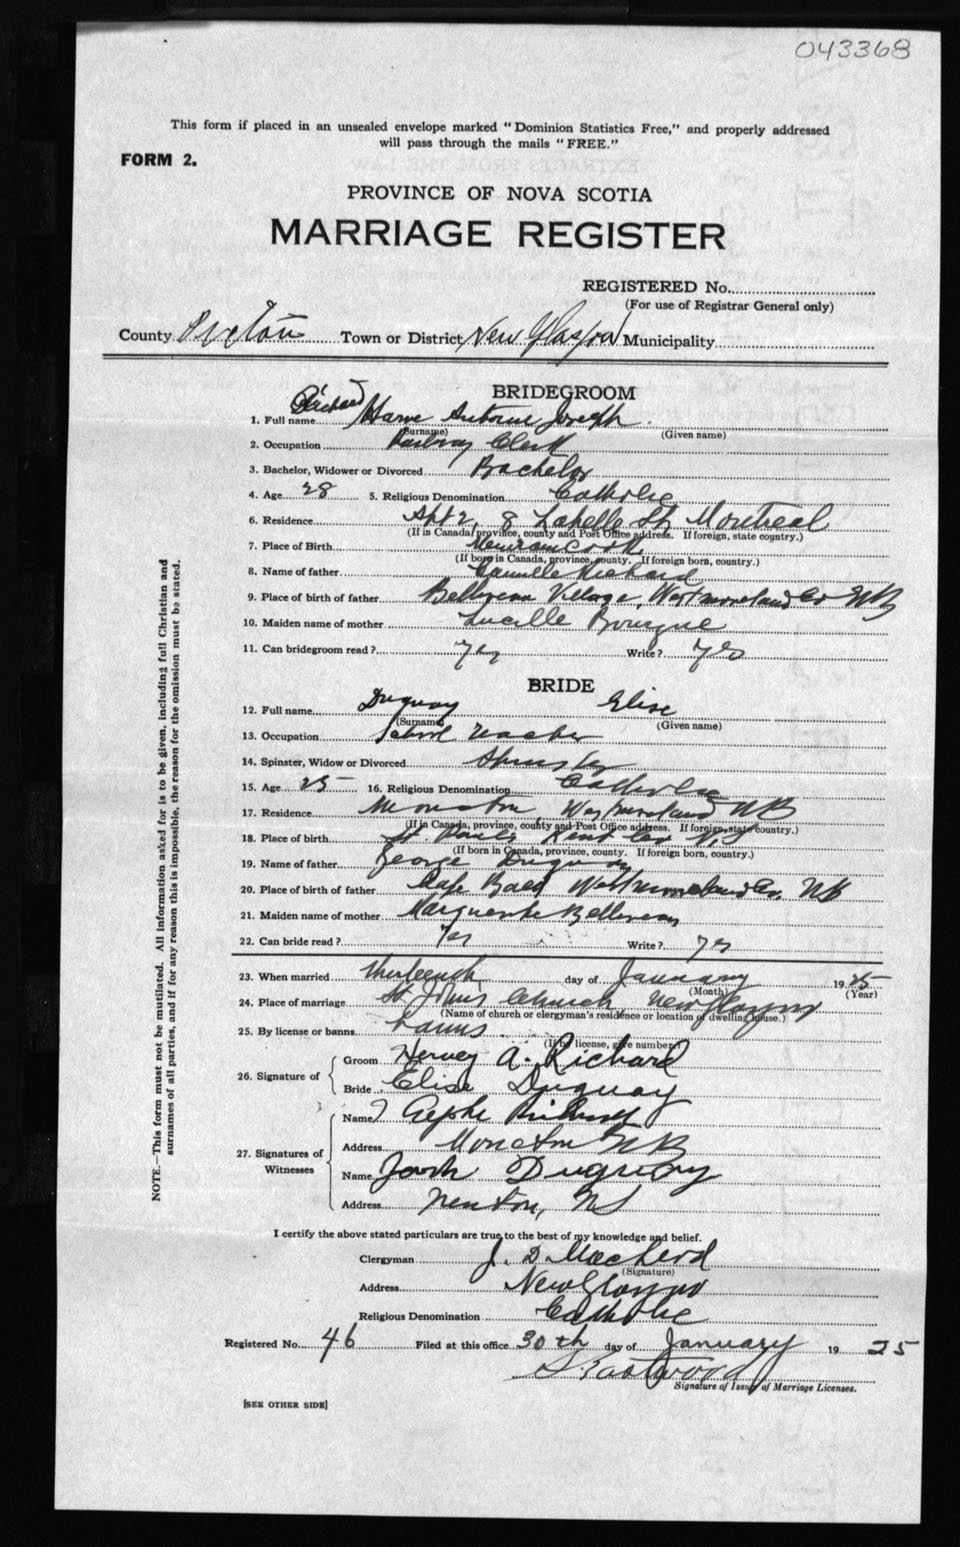 043368
This form if placed in an unsealed envelope marked "Dominion Statistics Free," and properly addressed
will pass through the mails "FREE."
FORM 2.
PROVINCE OF NOVA SCOTIA
MARRIAGE REGISTER
REGISTERED No.
(For use of Registrar General only)
County Pictou Town or District New Glasgow Municipality
BRIDEGROOM
1. Full name Richard Joseph
(Surname) (Given name)
2. Occupation Railway Clerk
3. Bachelor, Widower or Divorced Bachelor
4. Age 28 5. Religious Denomination Catholic
6. Residence Apt 2, 8 Labelle St, Montreal
(If in Canada, province, county and Post Office address. If foreign, state country.)
7. Place of Birth Memramcook
(If born in Canada, province, county. If foreign born, country.)
8. Name of father Camille Richard
9. Place of birth of father Belliveau Village, Westmoreland Co NB
10. Maiden name of mother Lucille Bourque
11. Can bridegroom read? Yes Write? Yes
BRIDE
12. Full name Duguay Elise
(Surname) (Given name)
13. Occupation School Teacher
14. Spinster, Widow or Divorced Spinster
15. Age 25 16. Religious Denomination Catholic
17. Residence Moncton Westmoreland NB
(If in Canada, province, county and Post Office address. If foreign, state country.)
18. Place of birth St. Pauls Kent Co
(If born in Canada, province, county. If foreign born, country.)
19. Name of father George Duguay
20. Place of birth of father Westmoreland Co, NB
21. Maiden name of mother Marguerite Belliveau
22. Can bride read? Yes Write? Yes
23. When married thirteenth day of January 1925
(Month) (Year)
24. Place of marriage St. Johns Church New Glasgow
(Name of church or clergyman's residence or location of dwelling house.)
25. By license or banns Banns
(If by license, give number)
26. Signature of
Groom Hervey A. Richard
Bride Elise Duguay
27. Signatures of Witnesses
Name Richard
Address Moncton NB
Name Duguay
Address NS
I certify the above stated particulars are true to the best of my knowledge and belief.
Clergyman J. D. MacLeod
(Signature)
Address New Glasgow
Religious Denomination Catholic
Registered No. 46 Filed at this office 30th day of January 1925
Eastwood
Signature of Issuer of Marriage Licenses.
[SEE OTHER SIDE]
NOTE.—This form must not be mutilated. All information asked for is to be given, including full Christian and
surnames of all parties, and if for any reason this is impossible, the reason for the omission must be stated.